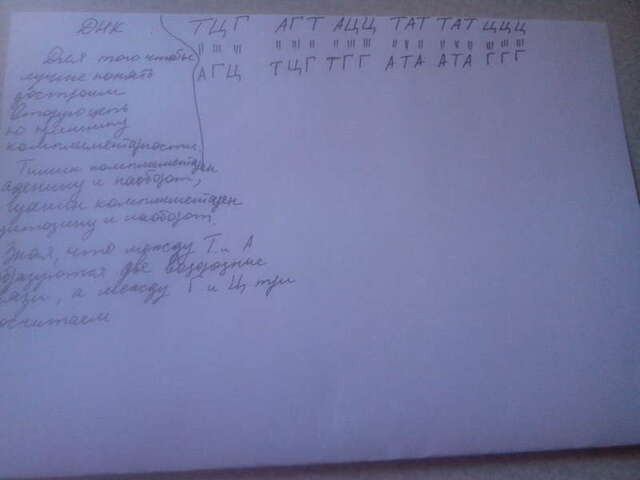 ДНК
ТЦГ АГТ АЦЦ ТАТ ТАТ ЦЦЦ
АГЦ ТЦГ ТГГ АТА АТА ГГГ
Для того чтобы
лучше понять
построим
вторую цепь
по принципу
комплиментарности.
Тимин комплиментарен
аденину и наоборот,
гуанин комплиментарен
цитозину и наоборот.
Зная, что между Т и А
образуются две водородные
связи, а между Г и Ц три
посчитаем